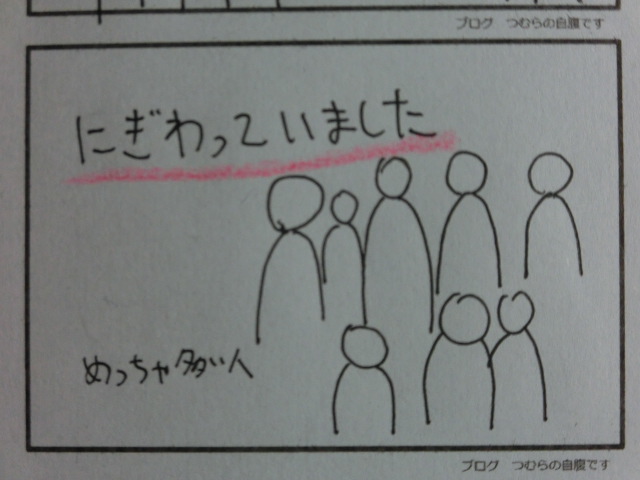 ブログ　つむらの自腹です
にぎわっていました
めっちゃ多い人
ブログ　つむらの自腹です